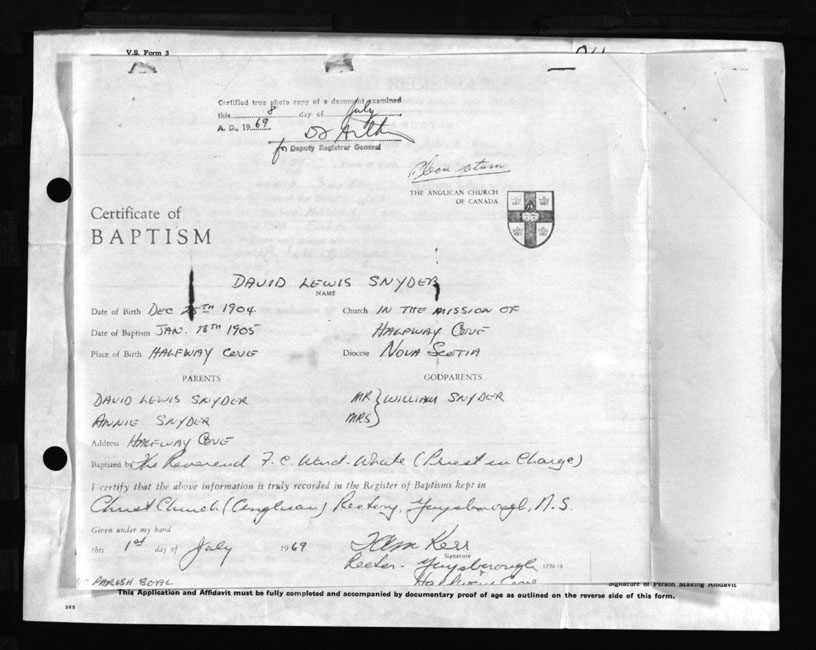 V.S. Form 3
Certified true photo copy of a document examined
this 8 day of July
A. D., 19 69
for Deputy Registrar General
Please return
THE ANGLICAN CHURCH
OF CANADA
Certificate of
BAPTISM
DAVID LEWIS SNYDER
NAME
Date of Birth DEC 25TH 1904 Church IN THE MISSION OF
Date of Baptism JAN. 18TH 1905 HALFWAY COVE
Place of Birth HALFWAY COVE Diocese NOVA SCOTIA
PARENTS GODPARENTS
DAVID LEWIS SNYDER MR } WILLIAM SNYDER
ANNIE SNYDER MRS }
Address HALFWAY COVE
Baptized by The Reverend F. C. Ward-Whate (Priest in Charge)
I certify that the above information is truly recorded in the Register of Baptisms kept in
Christ Church (Anglican) Rectory, Guysborough, N.S.
Given under my hand
this 1st day of July 1969 Kerr
Signature
Rector - Guysborough
PARISH SEAL
Signature of Person Making Affidavit
This Application and Affidavit must be fully completed and accompanied by documentary proof of age as outlined on the reverse side of this form.